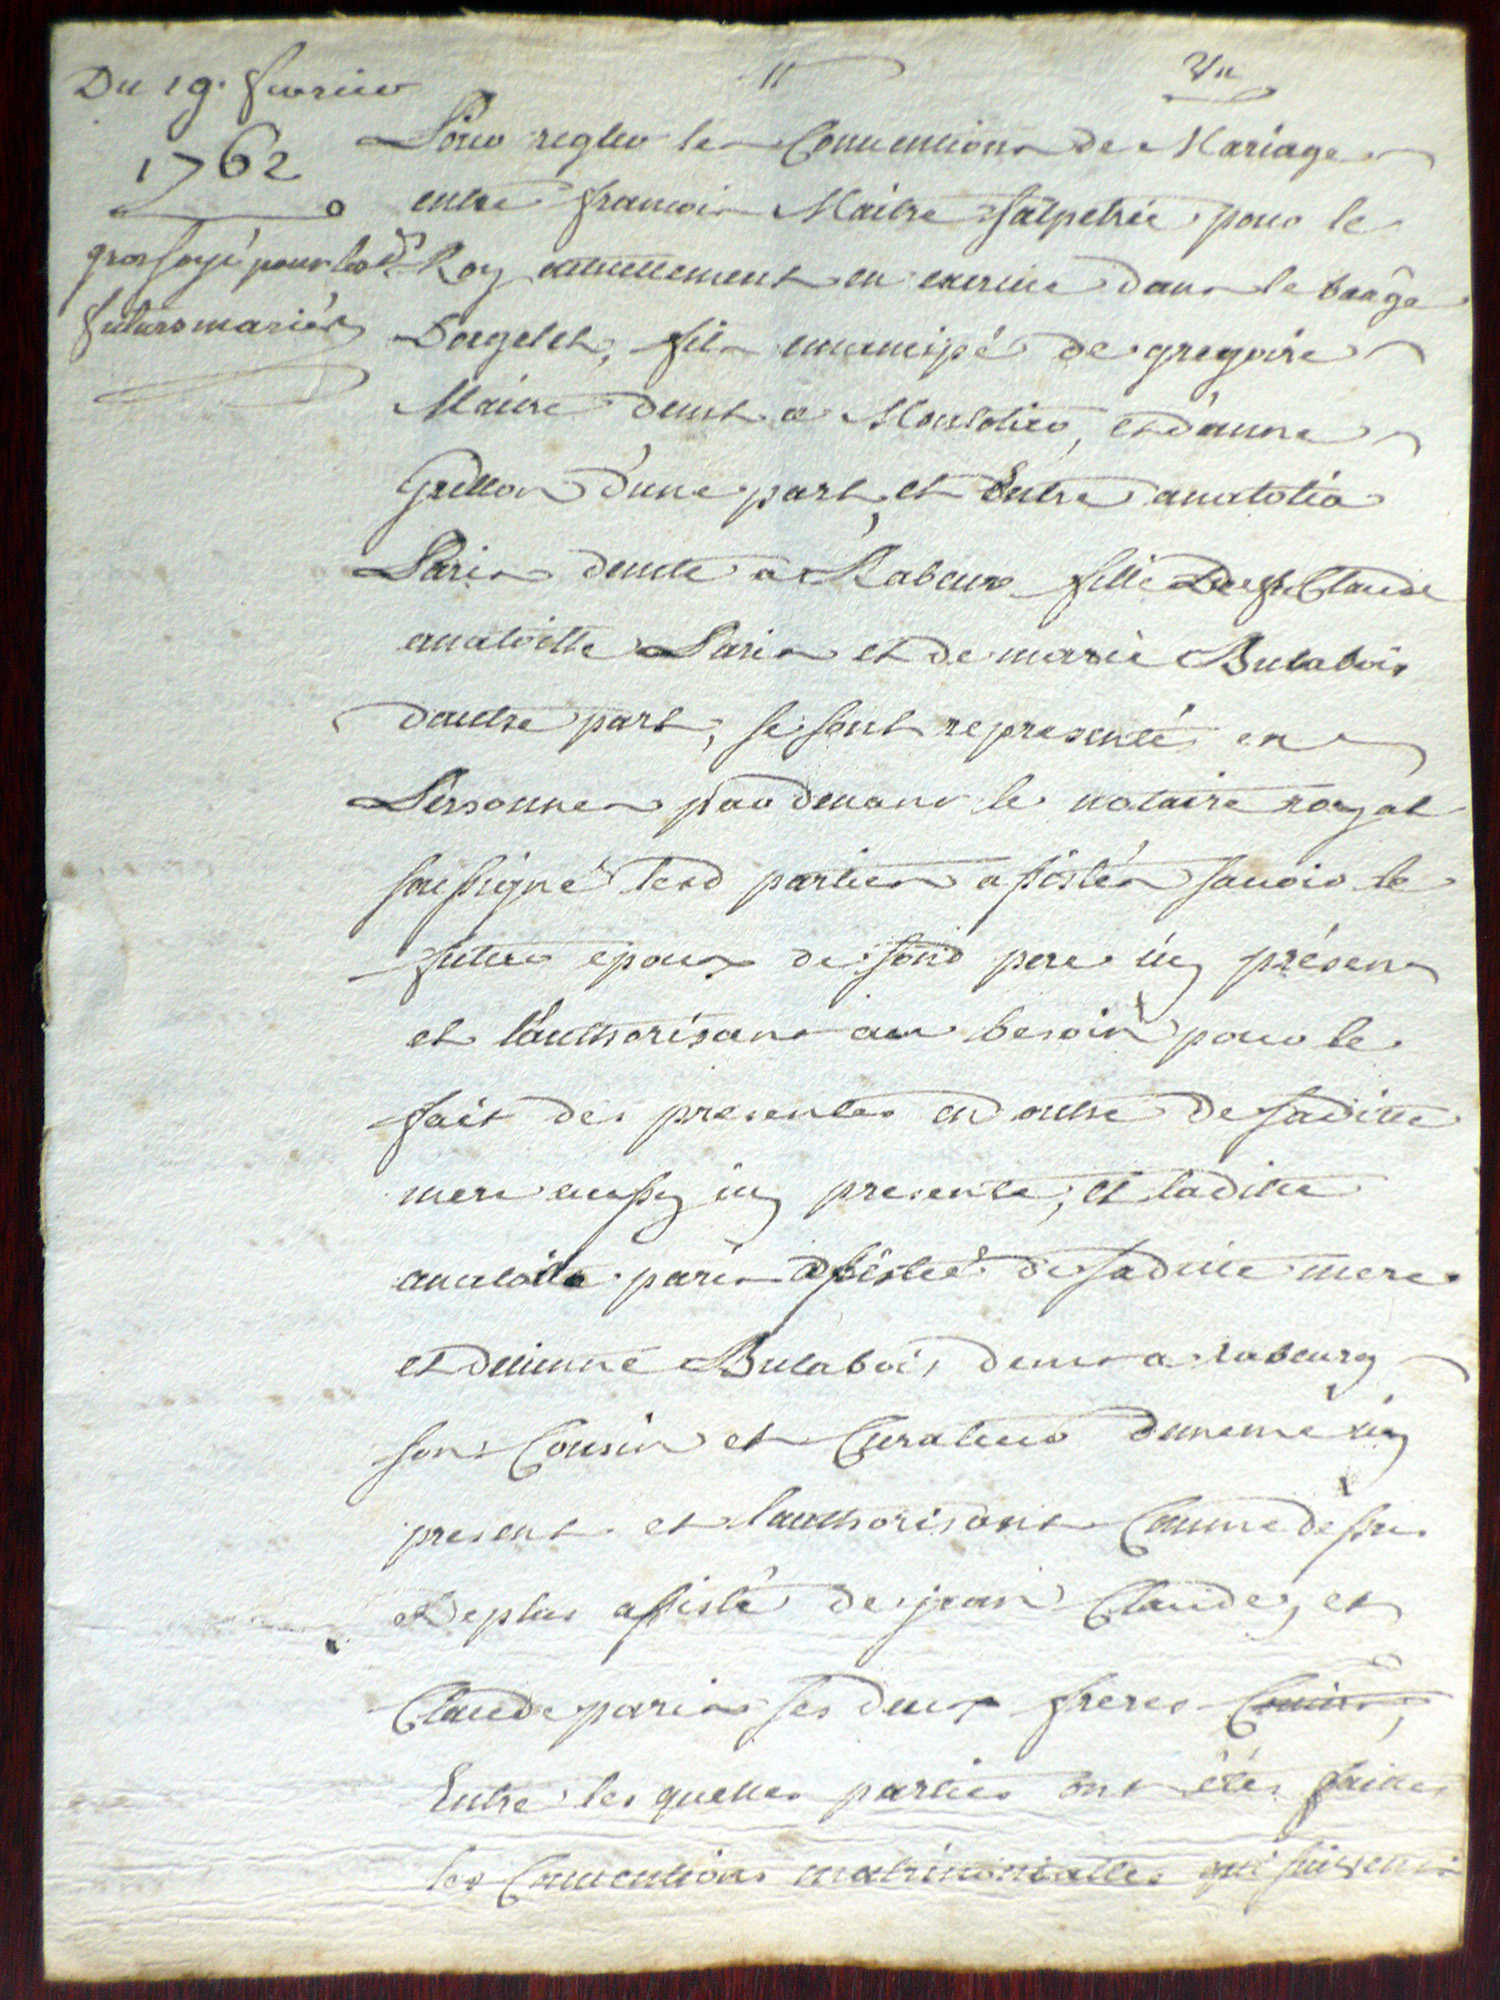 Du 19. fevrier
1762
grossoyé pour lesd
futurs mariés
Un
Pour regler les Conventions de Mariage
entre francois Maitre salpetrié pour le
Roy actuellement en exercice dans le baage
Dorgelet, fils emancipé de gregoire
Maitre demt a Montolier, et d'anne
Grillon d'une part, et Entre anatolia
Paris demte a Rabeur fille De ft Claude
anatoille Paris et de marie Bulabois
d'autre part, se sont representé en
Personnes par devant le notaire royal
soussigné lesd parties assistés savoir le
futur epoux de sond pere icy présent
et l'authorisant au besoin pour le
fait des presentes en outre de saditte
mere aussy icy presente, et laditte
anatoilla paris assistée de saditte mere
et detienne Bulabois demt a rabeur
son Cousin et Curateur de meme icy
present et lauthorisant Comme dessus
Deplus assisté de jean Claude, et
Claude paris ses deux freres
Entre lesquelles parties ont étés faittes
les Conventions matrimonialles qui suivent